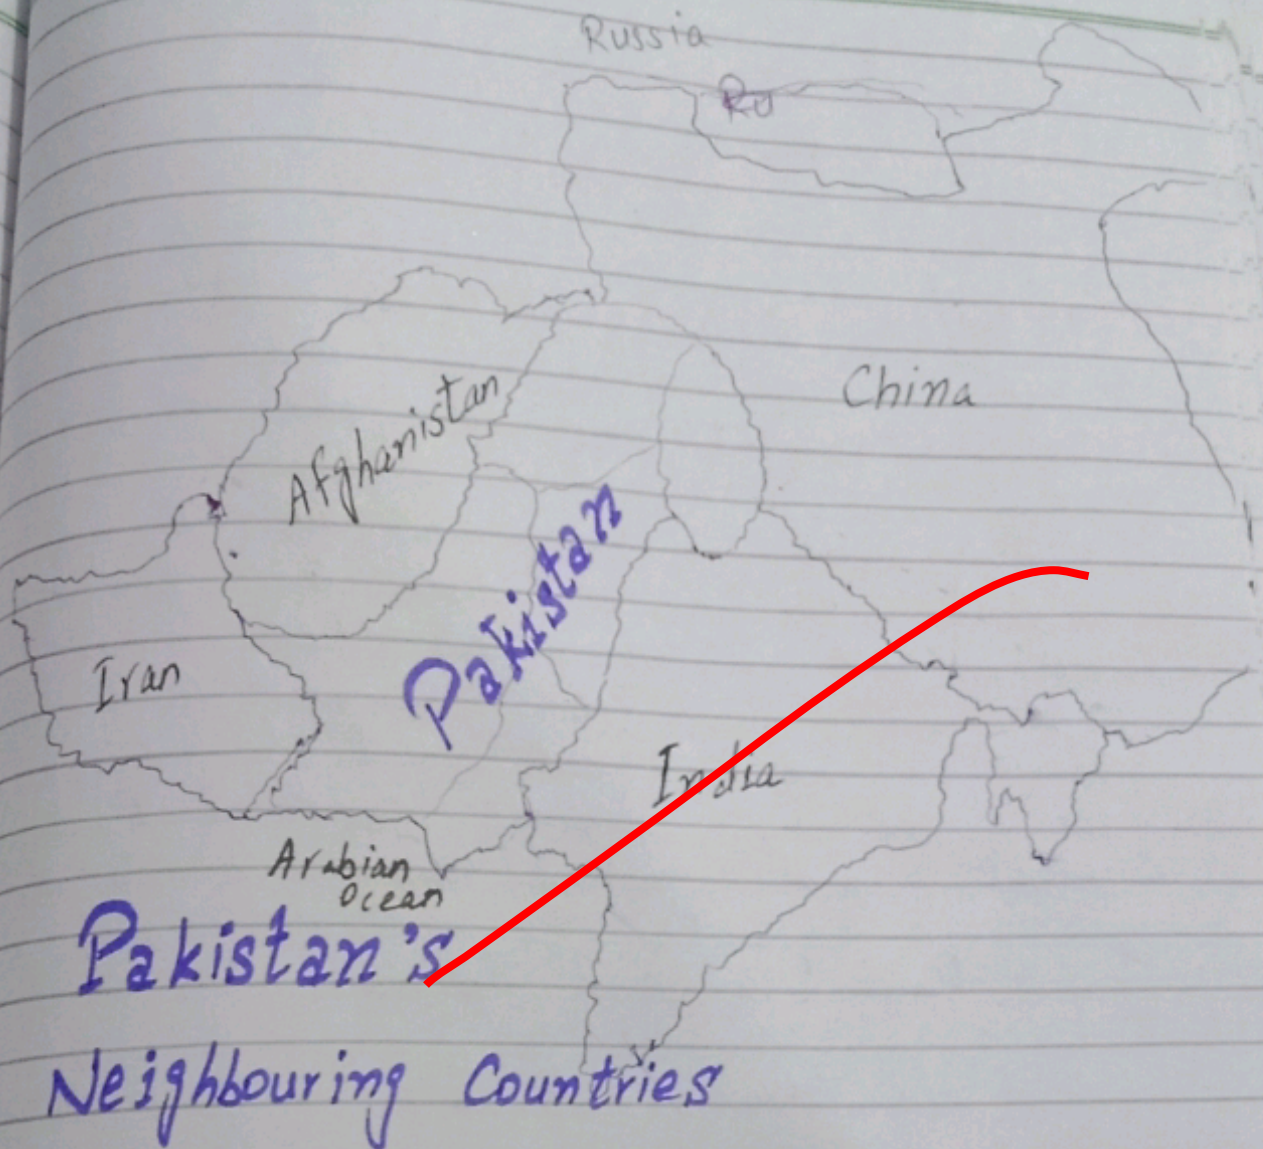 Russia
Ru
China
Afghanistan
Pakistan
Iran
India
Arabian
Ocean
Pakistan's
Neighbouring Countries